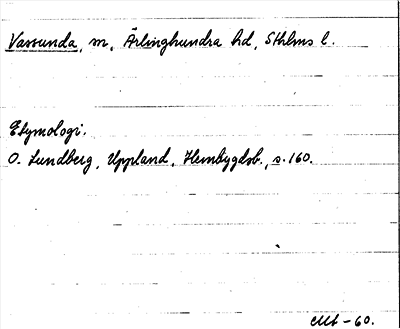 Vassunda, sn, Ärlinghundra hd, Sthlms l.
Etymologi.
O. Lundberg, Uppland, Hembygdsb., s. 160.
-60.